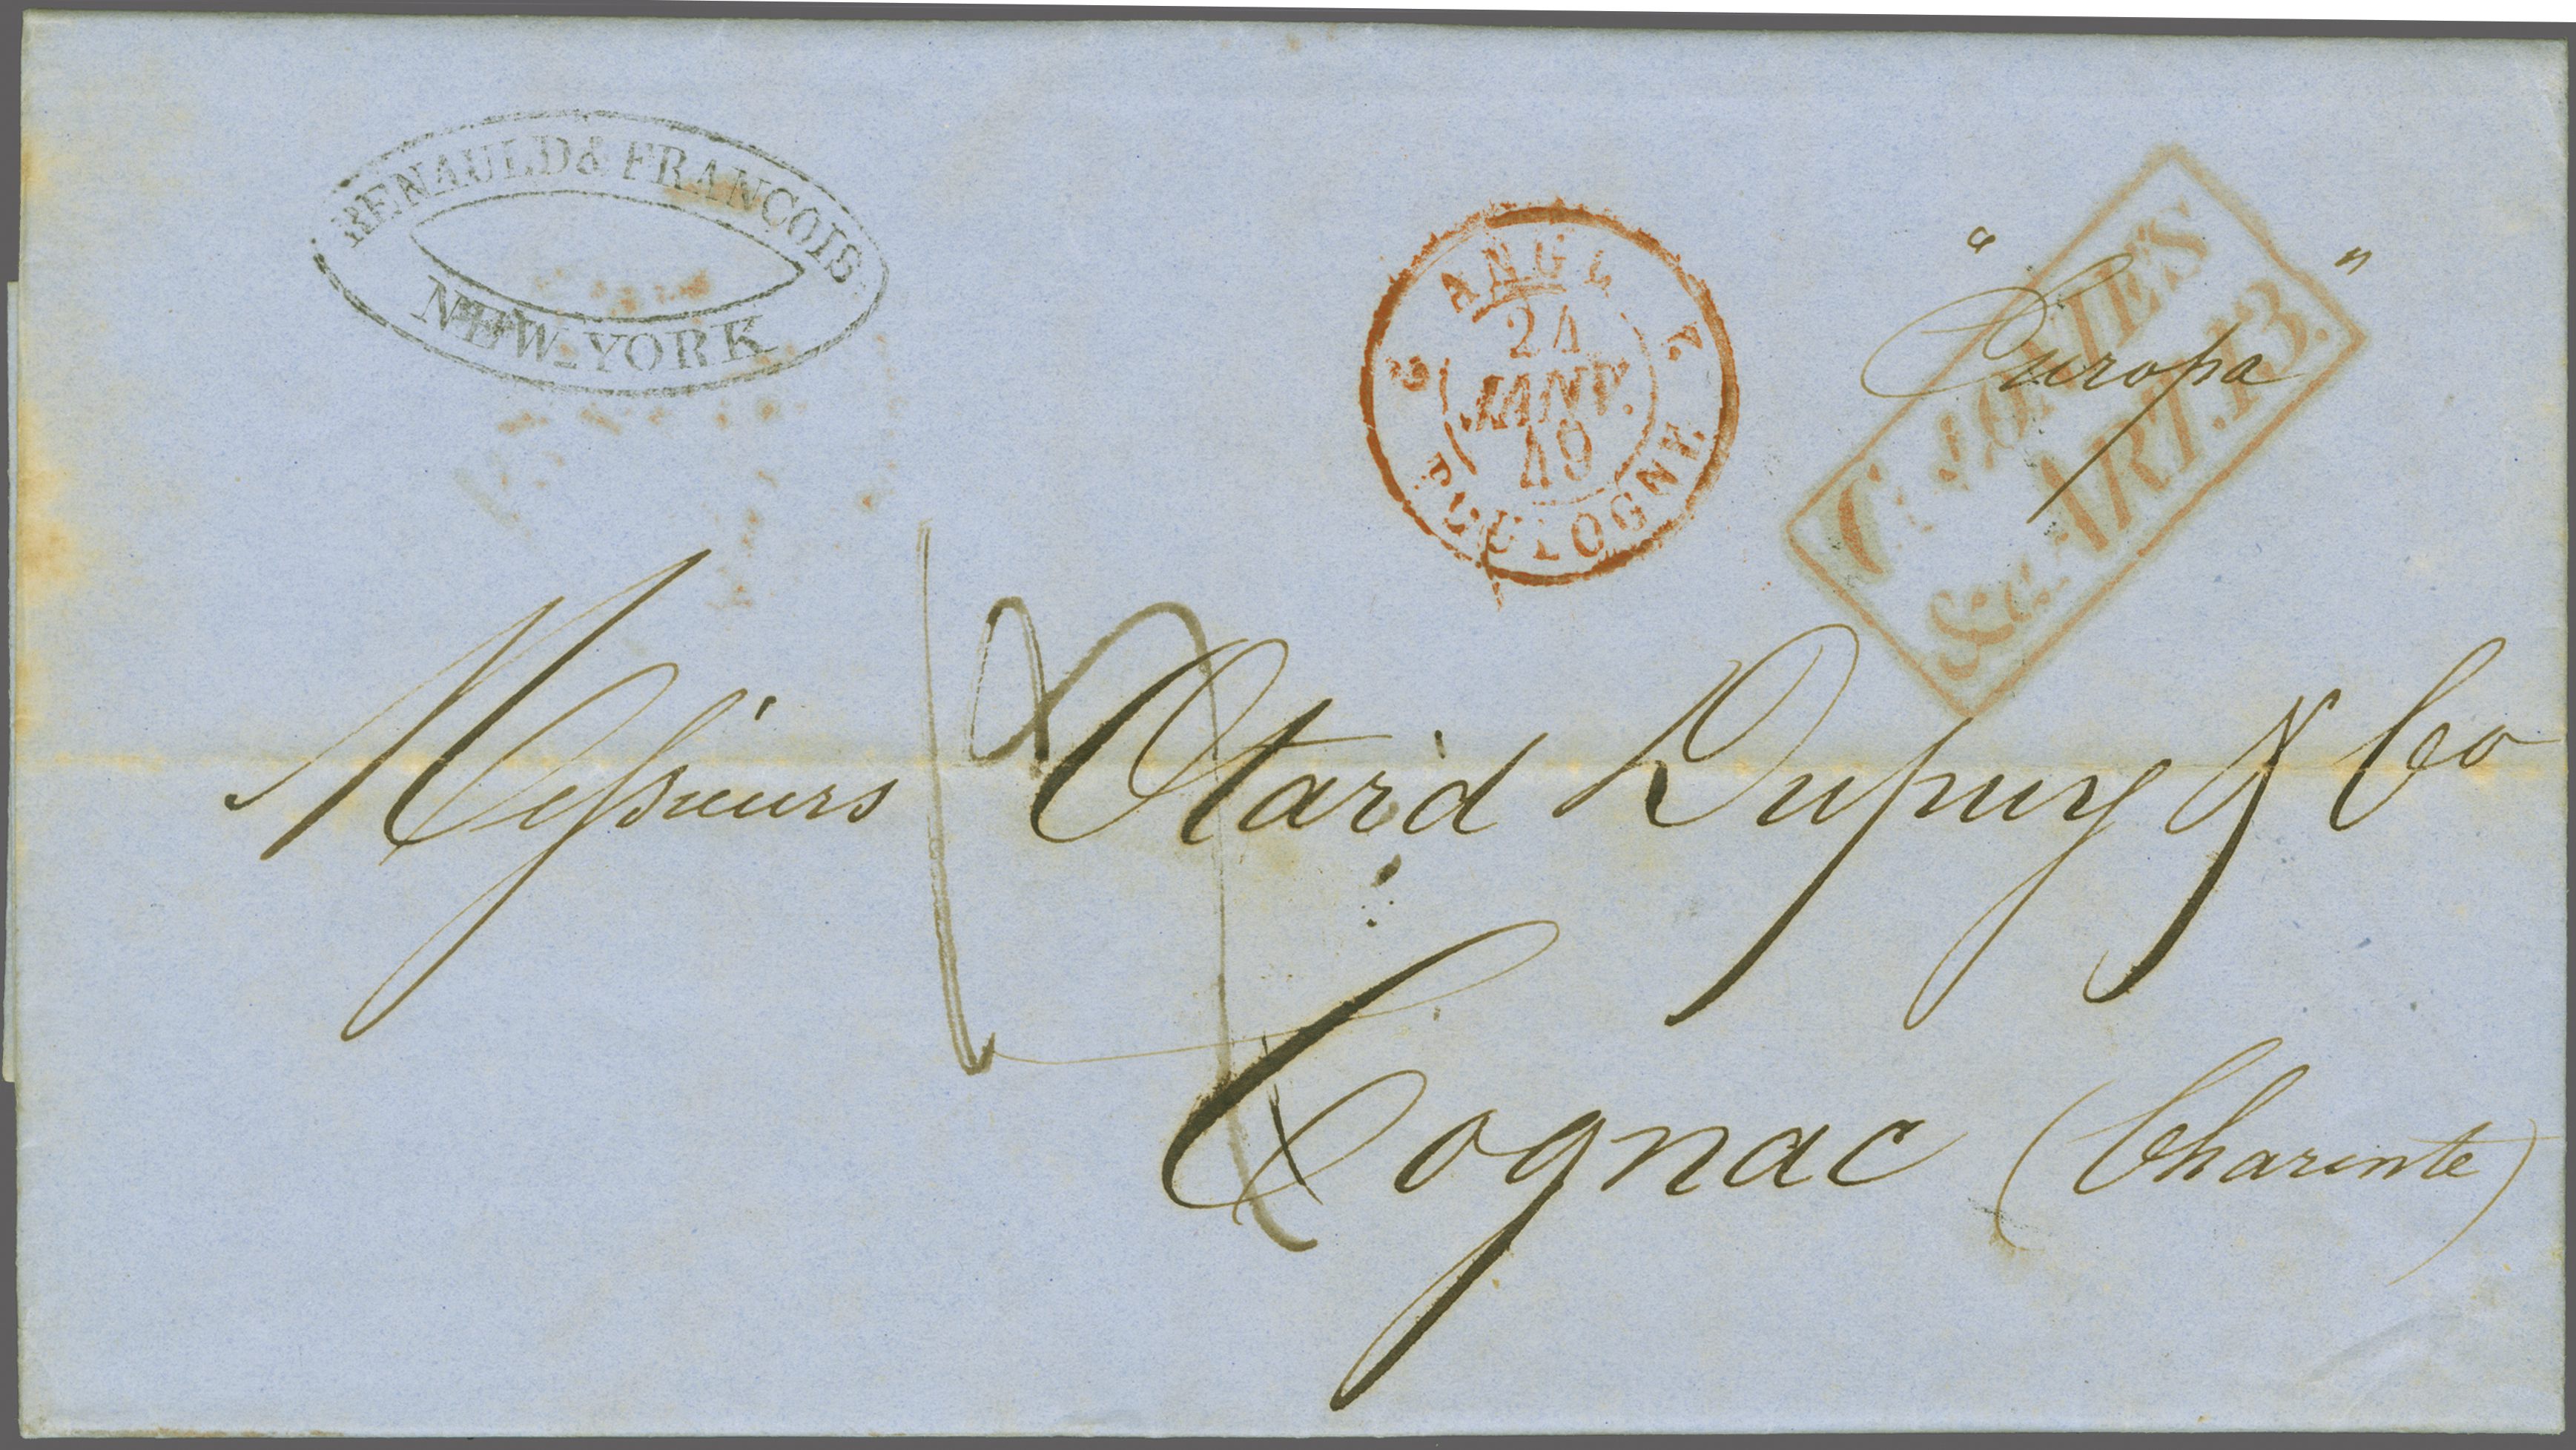 RENAULD & FRANCOIS
NEW-YORK
3 ANGL. 2
24
JANV.
49
BOULOGNE
"Europa"
COLONIES
&c. ART. 13.
Messieurs Otard Dupuy & Co
Cognac (Charente)